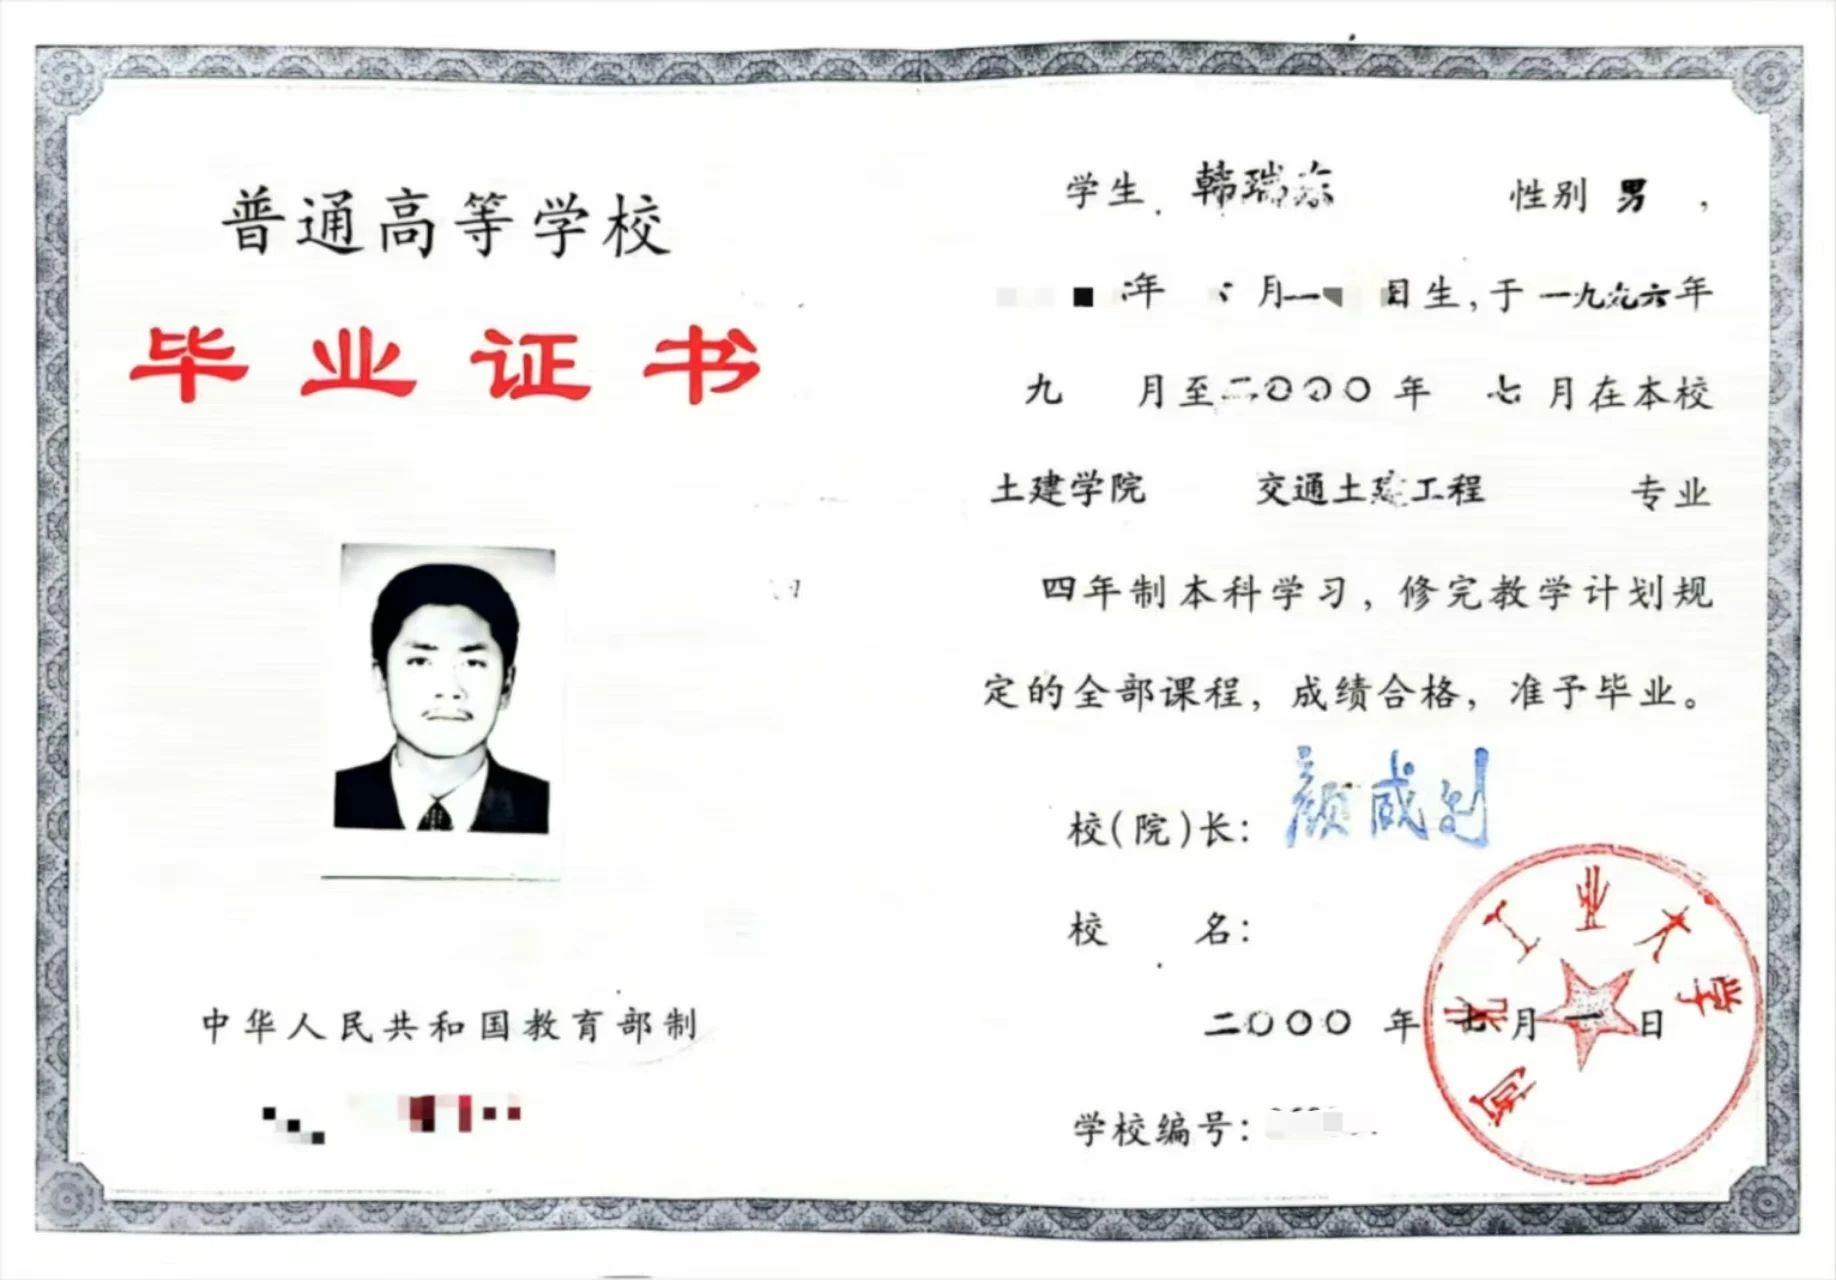 普通高等学校
毕业证书
中华人民共和国教育部制
学生 韩瑞东 性别 男 ,
年 月一 日生,于一九九六年
九 月至二〇〇〇年 七 月在本校
土建学院 交通土建工程 专业
四年制本科学习,修完教学计划规
定的全部课程,成绩合格,准予毕业。
校(院)长: 颜威利
校 名:
河北工业大学
二〇〇〇年 七月 一 日
学校编号: